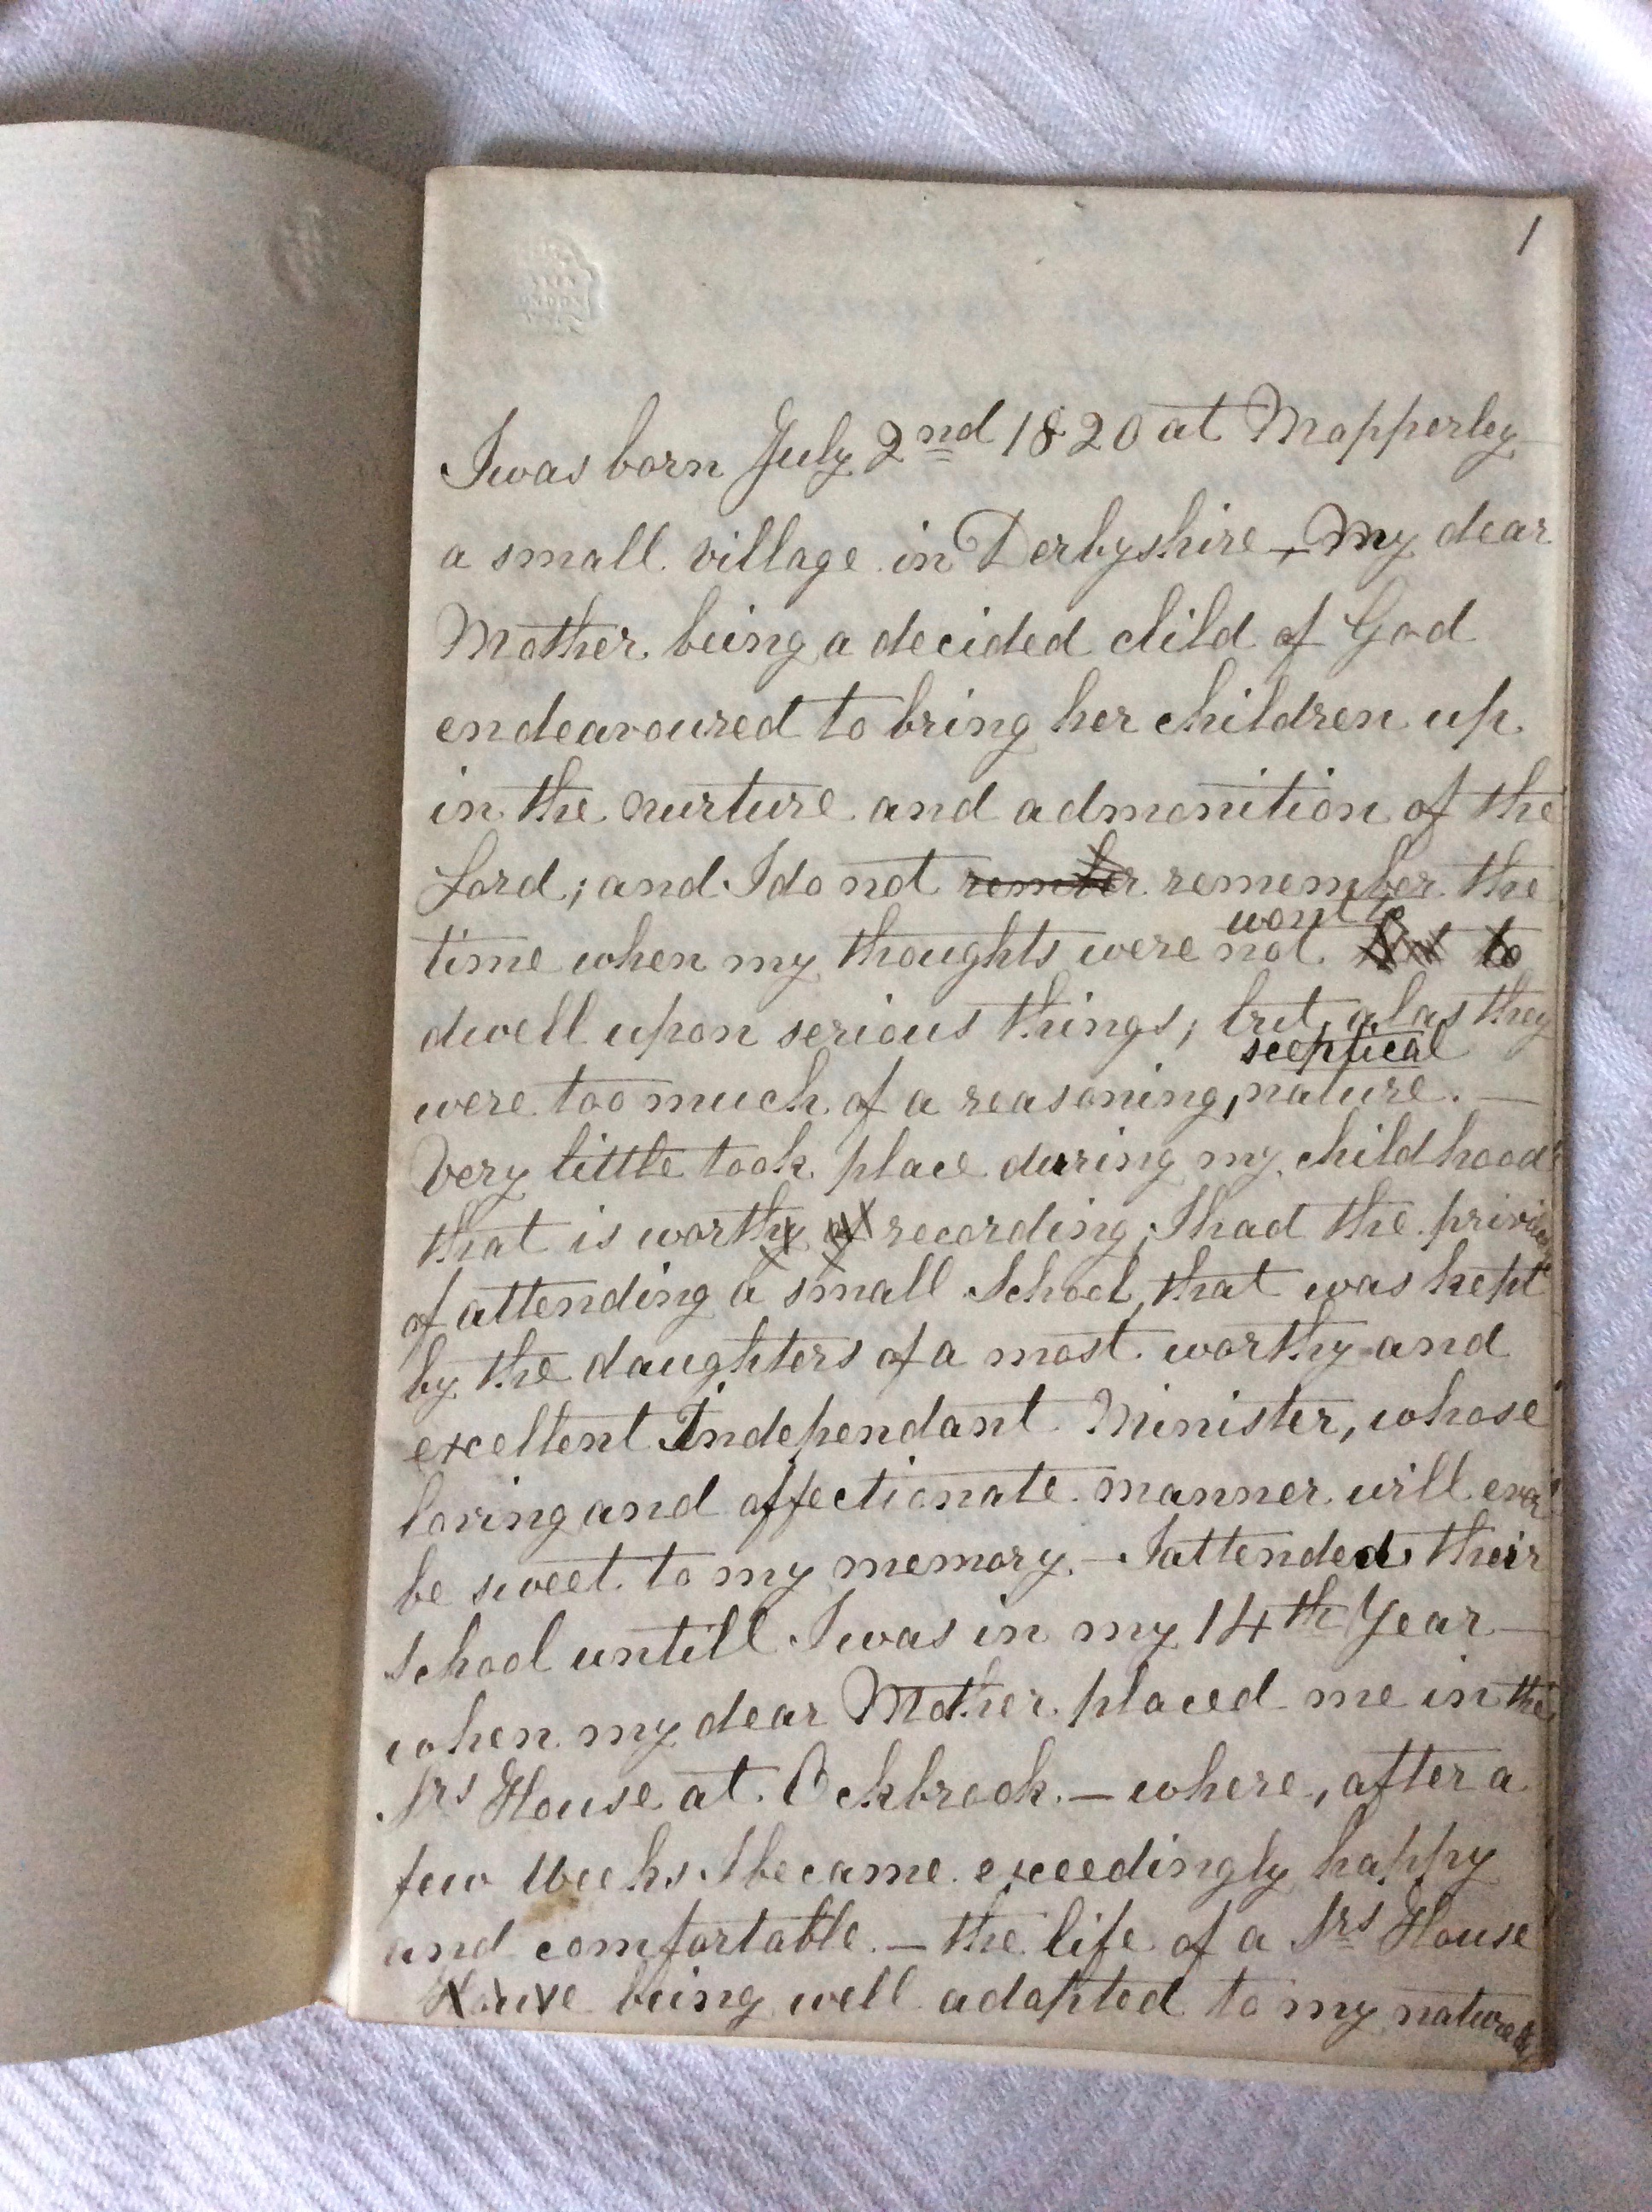 1
I was born July 2nd 1820 at Mapperley
a small village in Derbyshire – My dear
Mother being a decided child of God
endeavoured to bring her children up
in the nurture and admonition of the
Lord; and I do not rember remember the
wont to
time when my thoughts were not to
dwell upon serious things; but, alas they
sceptical
were too much of a reasoning, nature. –
Very little took place during my childhood
that is worthy of recording; I had the
of attending a small School, that was kept
by the daughters of a most worthy and
excellent Independant Minister, whose
loving and affectionate manner will ever
be sweet to my memory. – I attended their
school untill I was in my 14th Year –
when my dear Mother placed me in the
Srs House at Ockbrook. – where, after a
few Weeks I became exceedingly happy
and comfortable. – the life of a Srs House
being well adapted to my nature